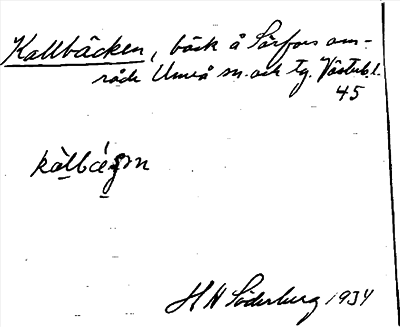 Kallbäcken, bäck å Sörfors om-
råde Umeå sn. och tg. Västerb. l.
45
kàlbǽgm
H H Söderberg 1934